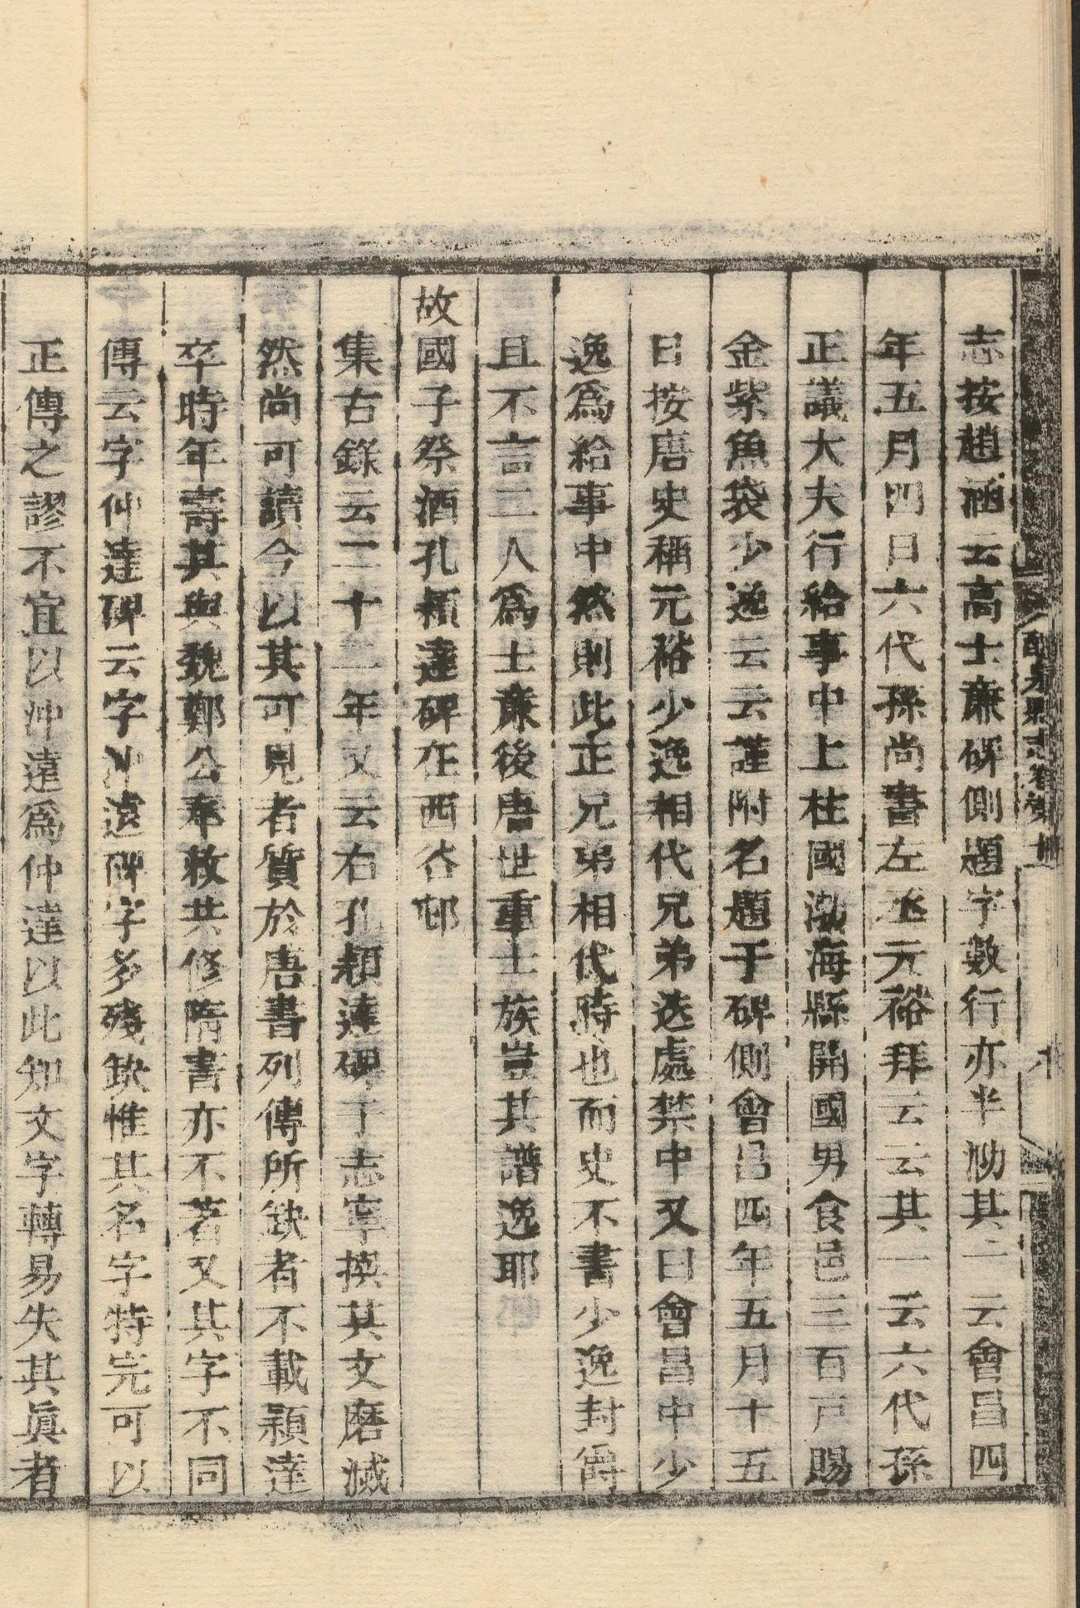 志按趙涵云高士廉碑側題字數行亦半泐其二云會昌四
年五月四日六代孫尚書左丞元裕拜云云其一云六代孫
正議大夫行給事中上柱國渤海縣開國男食邑三百戸賜
金紫魚袋少逸云云謹附名題于碑側會昌四年五月十五
日按唐史稱元裕少逸相代兄弟迭處禁中又曰會昌中少
逸爲給事中然則此正兄弟相代時也而史不書少逸封爵
且不言二人爲士廉後唐世重士族豈其譜逸耶
故國子祭酒孔穎達碑在西谷邨
集古錄云二十二年又云右孔穎達碑于志寧撰其文磨滅
然尚可讀今以其可見者質於唐書列傳所缺者不載穎達
卒時年壽其與魏鄭公奉敕共修隋書亦不著又其字不同
傳云字仲達碑云字沖遠碑字多殘缺惟其名字特完可以
正傳之謬不宜以沖遠爲仲達以此知文字轉易失其眞者
醴泉縣志卷第